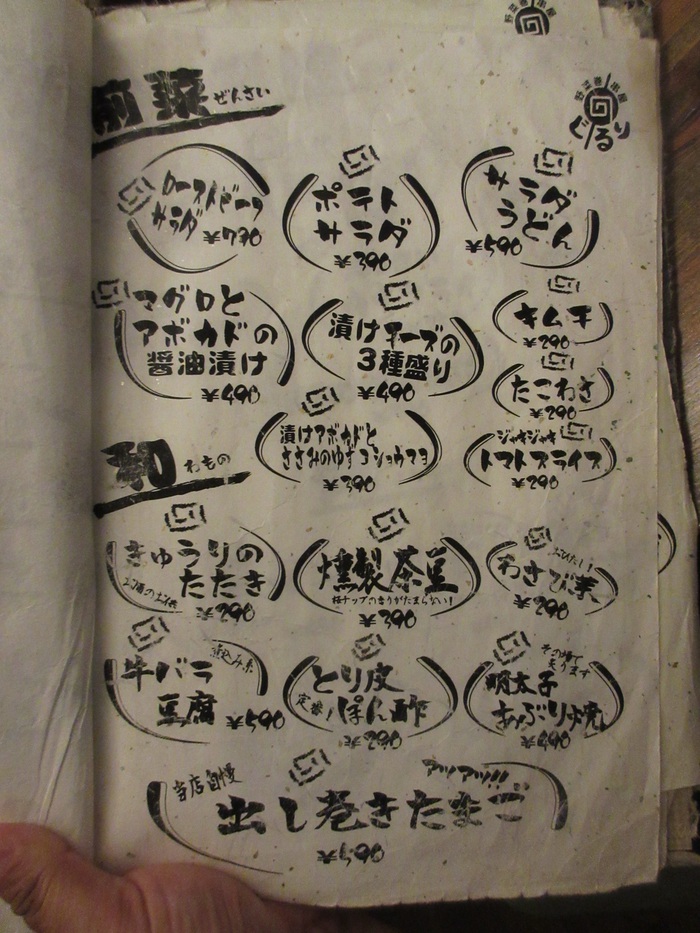 野菜巻 串屋
野菜巻 串屋
ぐるり
前菜 ぜんさい
ローストビーフ
サラダ
¥790
ポテト
サラダ
¥390
サラダ
うどん
¥590
マグロと
アボカドの
醤油漬け
¥490
漬けチーズの
3種盛り
¥490
キムチ
¥290
たこわさ
¥290
漬けアボカドと
ささみのゆずコショウマヨ
¥390
ジャキジャキ
トマトスライス
¥290
和 わもの
きゅうりの
たたき
¥290
燻製茶豆
桜チップの香りがたまらない!
¥390
わさび菜
¥290
煮込み系
牛バラ
豆腐
¥590
とり皮
定番!ぽん酢
¥290
その場で
炙ります
明太子
あぶり焼
¥490
当店自慢
アッツアツ!!!
出し巻きたまご